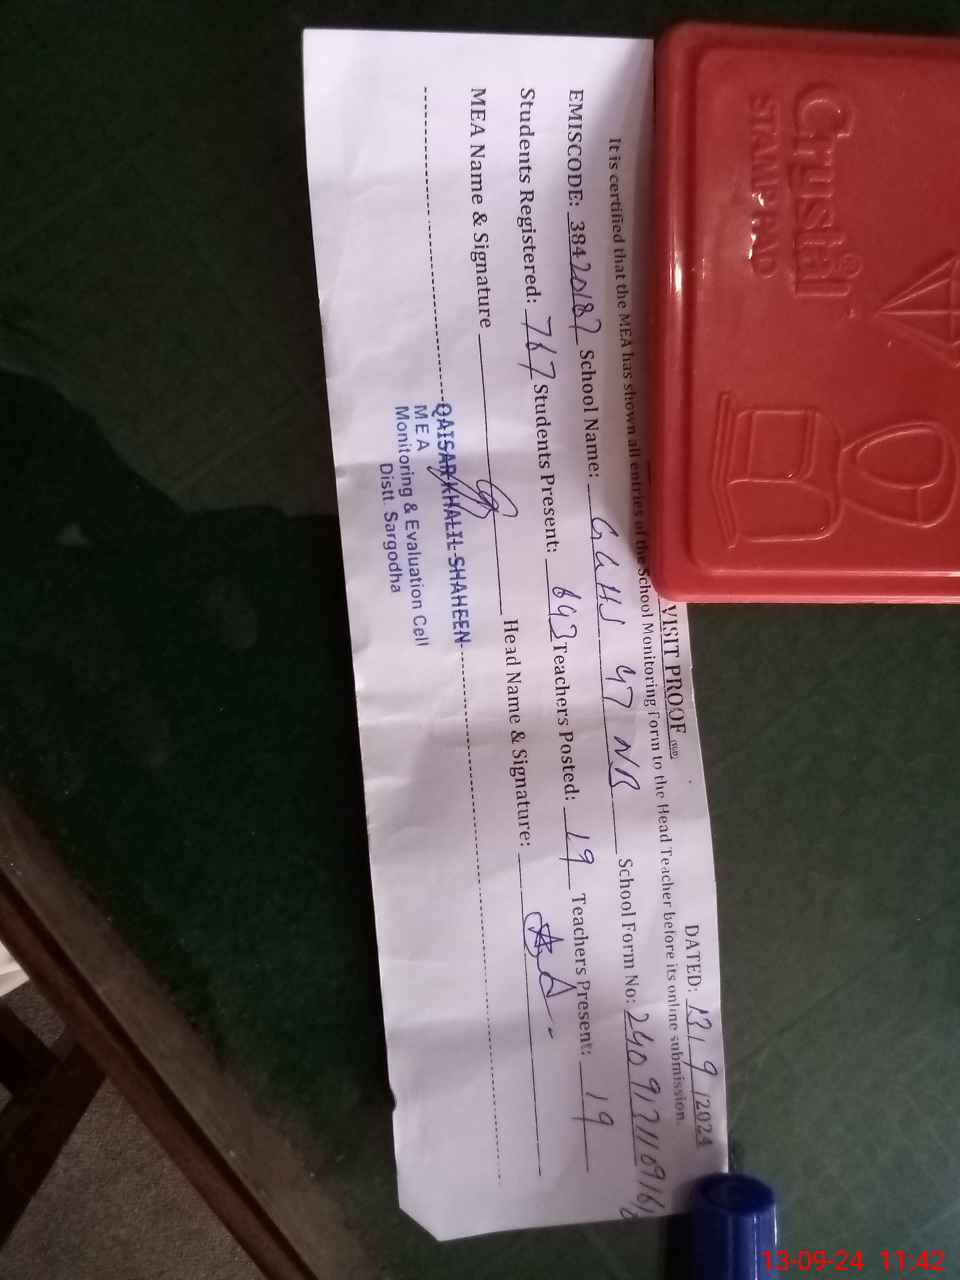 VISIT PROOF
DATED: 13/9/2024
It is certified that the MEA has shown all entries of the School Monitoring Form to the Head Teacher before its online submission.
EMISCODE: 38420187 School Name: GGHS 47 NB School Form No:
Students Registered: 767 Students Present: 643 Teachers Posted: 19 Teachers Present: 19
MEA Name & Signature Head Name & Signature:
QAISAR KHALIL SHAHEEN
MEA
Monitoring & Evaluation Cell
Distt. Sargodha
Crystal
STAMP PAD
13-09-24 11:42